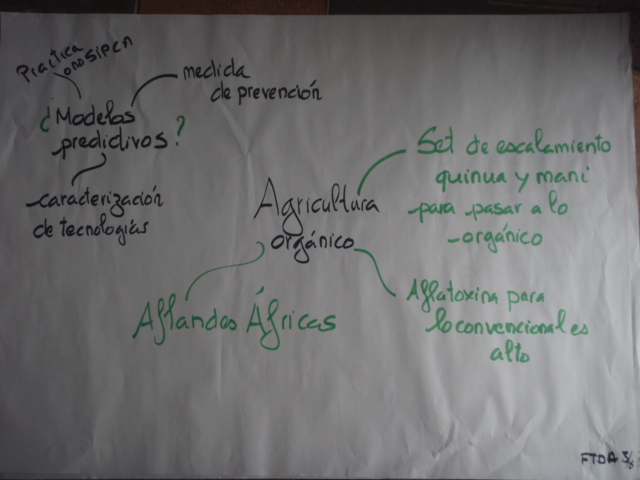 Practica
medida
de prevención
¿Modelos
predictivos?
caracterización
de tecnologías
Agricultura
orgánico
Set de escalamiento
quinua y maní
para pasar a lo
orgánico
Aflatoxina para
lo convencional es
alto
Aflandes Áfricas
FTDA